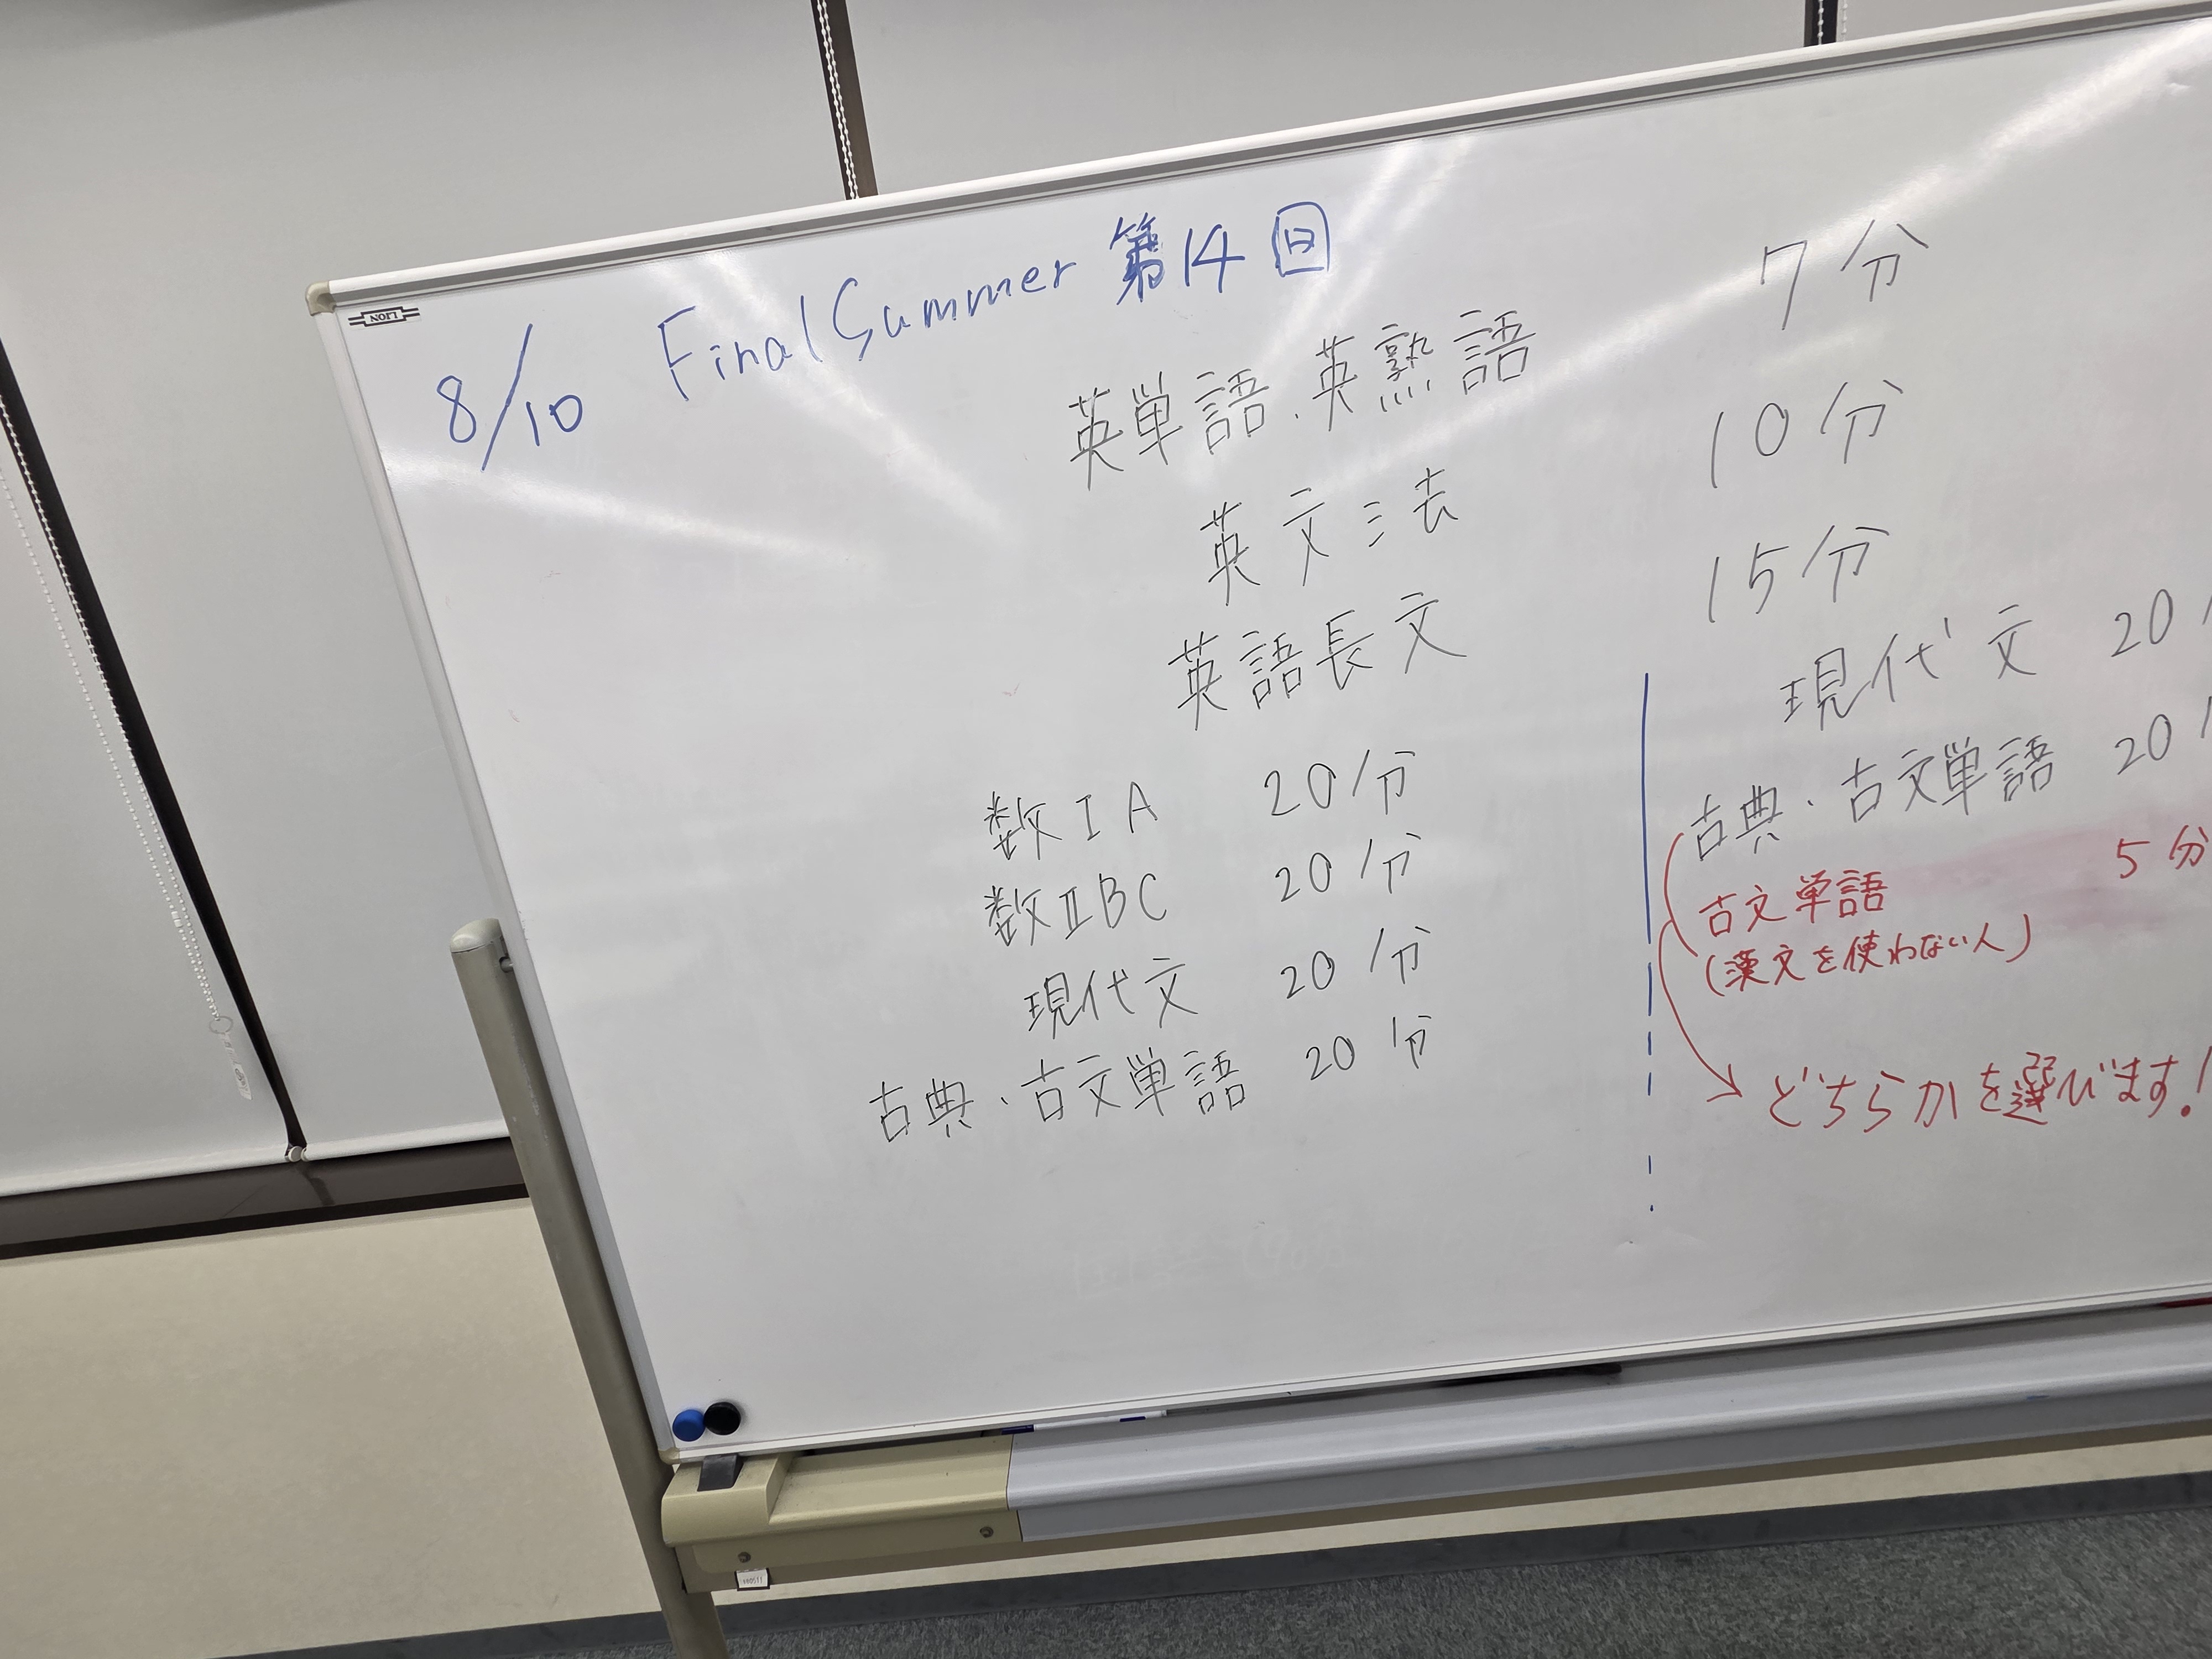 LION
8/10 Final Summer 第14回
英単語、英熟語 7分
英文法 10分
英語長文 15分
数ⅠA 20分
数ⅡBC 20分
現代文 20分
古典・古文単語 20分
現代文 20
古典・古文単語 20
古文単語 5分
(漢文を使わない人)
どちらかを選びます!